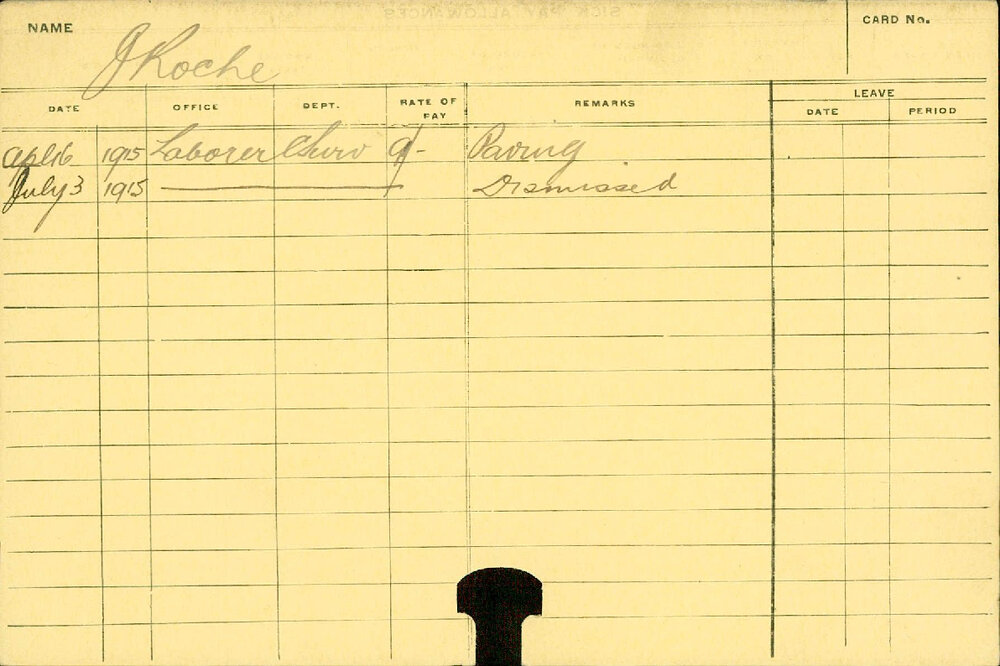 NAME
J Roche
CARD No.
DATE OFFICE DEPT. RATE OF PAY REMARKS LEAVE
DATE PERIOD
Apl 16 1915 Laborer CSurv 9/- Paving
July 3 1915 Dismissed